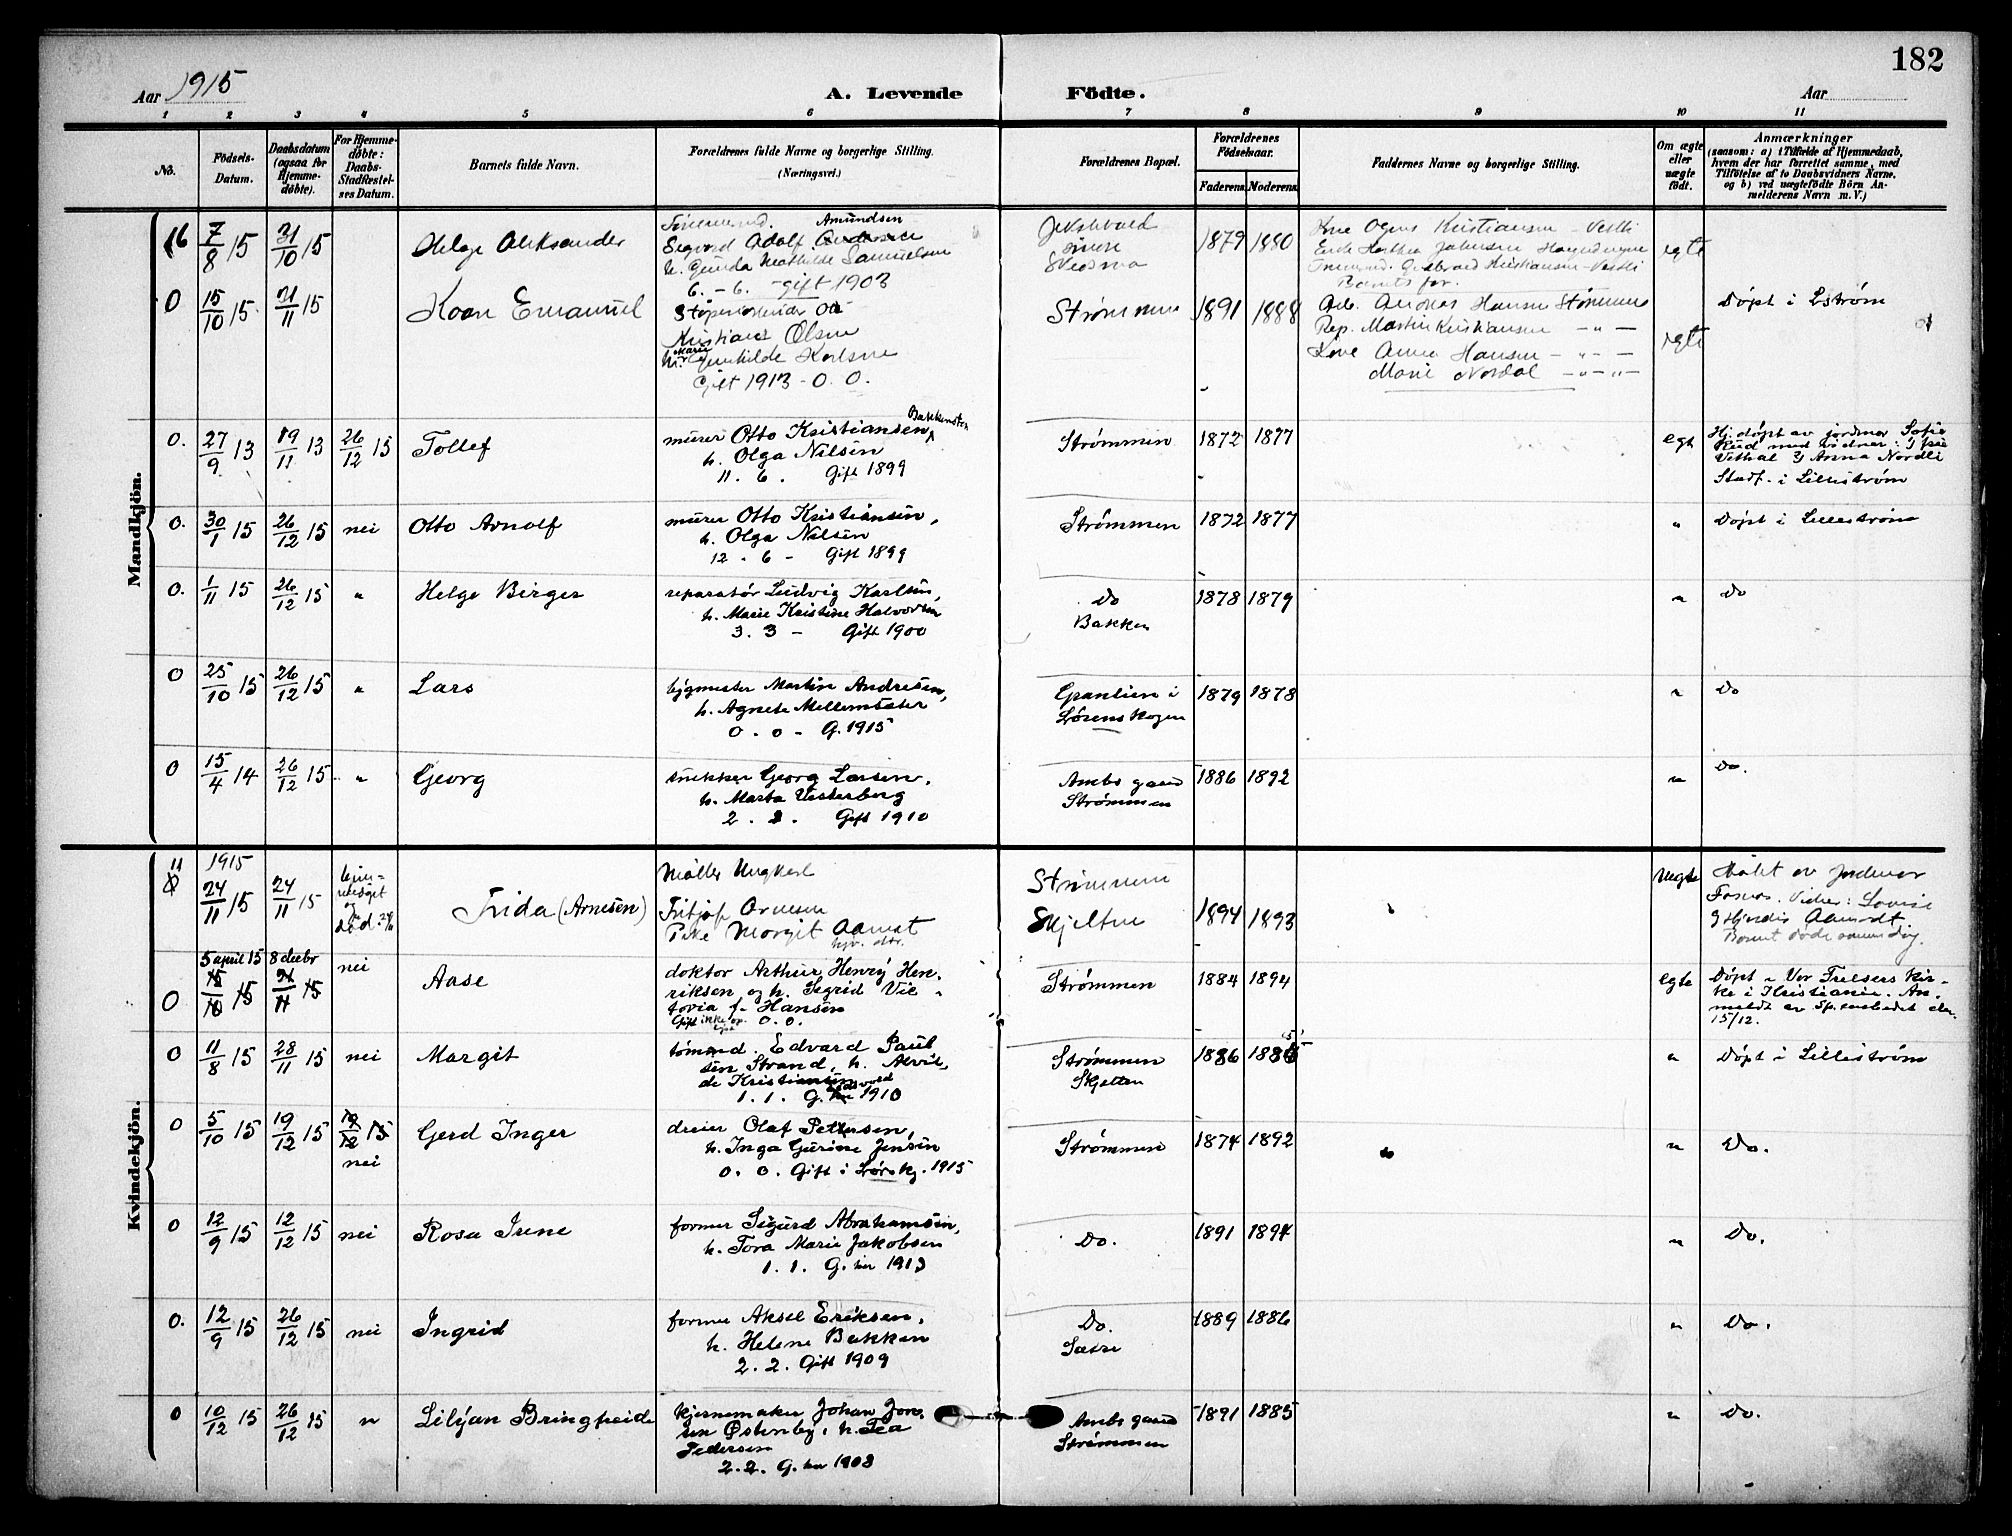 182
Aar 1915
A. Levende
Födte.
Aar
1 2 3 4 5 6 7 8 9 10 11
No.
Födsels-
Datum.
Daabsdatum
(ogsaa for
Hjemme-
döbte).
For Hjemme-
döbte:
Daabs-
Stadfæstel-
ses Datum.
Barnets fulde Navn.
Forældrenes fulde Navne og borgerlige Stilling.
(Næringsvei.)
Forældrenes Bopæl.
Forældrenes
Födselsaar.
Faderens. Moderens.
Faddernes Navne og borgerlige Stilling.
Om ægte
eller
uægte
födt.
Anmærkninger
(saasom: a) i Tilfælde af Hjemmedaab,
hvem der har forrettet samme, med
Tilföielse af to Daabsvidners Navne,
og b) ved uægtefödte Börn An-
melderens Navn m. V.)
Mandkjön.
16 7/8 15 31/10 15 Helge Aleksander
Amundsen
Sigvard Adolf
h. Gunda Mathilde Samuelsen
6. - 6. - gift 1903
1879 1880
Kristiansen - Vestli
egte
0 15/10 15 21/11 15 Koan Emanuel
Kristian Olsen
Marie
h. Gunhilde Karlsen
Gift 1913 - 0. 0.
Strømmen 1891 1888
Arb. Andreas Hansen Strømmen
Rep. Martin Kristiansen - " -
Anna Hansen - " -
Marie Nordal - " - " -
egte
Døpt i Lstrøm
0. 27/9 13 19/11 13 26/12 15 Tollef
murer Otto Kristiansen, Bakkensten
h. Olga Nilsen
11. 6. Gift 1899
Strømmen 1872 1877 egt
Hj.døpt av jordmor Sofie
Rud med vidner: 1)
2) Anna Nordli
Stadf. i Lillestrøm
0. 30/1 15 26/12 15 nei Otto Arnolf
murer Otto Kristiansen,
h. Olga Nilsen
12 - 6 - Gift 1899
Strømmen 1872 1877 " Døpt i Lillestrøm
0. 1/11 15 26/12 15 " Helge Birger
reparatør Ludvig Karlsen,
h. Marie Kristine Halvorsen
3. 3 - Gift 1900
Do
Bakken
1878 1879 " Do
0 25/10 15 26/12 15 " Lars
bygmester Martin Andresen,
h. Agnete Mellemsæter
0. 0 - G. 1915
Granlien i
Lørenskogen
1879 1878 " Do
0 15/4 14 26/12 15 " Georg
snekker Georg Larsen,
h. Marta Vesterberg
2. 2. Gift 1910
Ambs gaard
Strømmen
1886 1892 " Do.
Kvindekjön.
11 1915
24/11 15 24/11 15
og
død
Frida (Arnesen)
Møller Ungkarl
Fritjof Arnesen
Pike Margit Aamot
hjv. dtr.
Strømmen
Skjetten
1894 1893 uegte
Døbt av Jordmor
Vidner: Lovise
Hjørdis Aamodt.
Barnet døde samme dag.
0 5 april 15 8 decbr
nei Aase
doktor Arthur Henry Hen-
riksen og h. Sigrid Vic-
toria f. Hansen
Gift ikke op. 0. 0.
Strømmen 1884 1894 egte
Døpt i Vor Frelsers kir-
ke i Kristiania. An-
meldt av
15/12.
0 11/8 15 28/11 15 nei Margit
tømmd. Edvard Paul-
sen Strand, h. Alvil-
de Kristiansen
1. 1. G. 1910
Strømmen
Skjetten
1886 1885 " Døpt i Lillestrøm
0 5/10 15 19/12 15 19/12 15
nei
Gerd Inger
dreier Olaf Pettersen,
h. Inga Gurine Jensen
0. 0. Gift i Lørskg. 1915
Strømmen 1874 1892 " Do.
0 12/9 15 12/12 15 nei Rosa Irene
former Sigurd Abrahamsen,
h. Tora Marie Jakobsen
1. 1. G. her 1913
Do. 1891 1894 " Do.
0. 12/9 15 26/12 15 nei Ingrid
former Aksel Eriksen,
h. Helene Bakken
2. 2. Gift 1909
Do.
Sætre
1889 1886 " Do.
0 10/12 15 26/12 15 " Lilyan Bringfreide
kjernemaker Johan Jon-
sen Østenby, h. Tea
Pedersen
2. 2. G. her 1908
Ambs gaard
Strømmen
1891 1885 " Do.